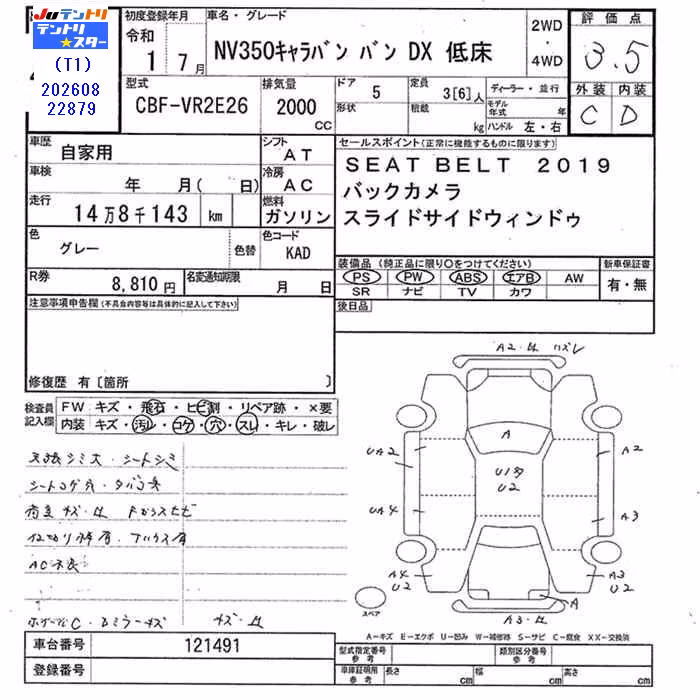 JUテントリ
テントリ★スター
(T1)
202608
22879
初度登録年月
令和
1 7月
車名・グレード
NV350キャラバン バン DX 低床
2WD
・
4WD
評価点
3.5
外装 内装
C D
型式
CBF-VR2E26
排気量
2000
CC
ドア
5
形状
定員
3[6]人
積載
kg
ディーラー・並行
モデル年式 年
ハンドル 左・右
車歴
自家用
シフト
AT
車検
年 月( 日)
冷房
AC
走行
14万8千143 km
燃料
ガソリン
色
グレー
色替
色コード
KAD
R券
8,810円
名変通知期限
月 日
セールスポイント(正常に機能するものに限ります)
SEAT BELT 2019
バックカメラ
スライドサイドウィンドゥ
装備品(純正品に限り○をつけてください)
PS PW ABS エアB AW
SR ナビ TV カワ
新車保証書
有・無
後日品
注意事項申告欄(不具合内容等は具体的に記入して下さい)
修復歴 有〔箇所 〕
検査員記入欄
FW キズ・飛石・ヒビ割・リペア跡・×要
内装 キズ・汚レ・コゲ・穴・スレ・キレ・破レ
天張シミ大・シートシミ
シートコゲ穴・タバコ臭
荷室キズ・凹 Fガラスヒビ
AC不良
キズ・凹
A2・凹 ハズレ
A
UA2
A2
U1多
U2
UA4
A3
A4
U2
A3
U2
A
A3・凹
スペア
A-キズ E-エクボ U-凹み W-補修跡 S-サビ C-腐食 XX-交換済
車台番号
121491
登録番号
型式指定番号
参考
類別区分番号
参考
車庫証明用
参考
長さ cm
幅 cm
高さ cm